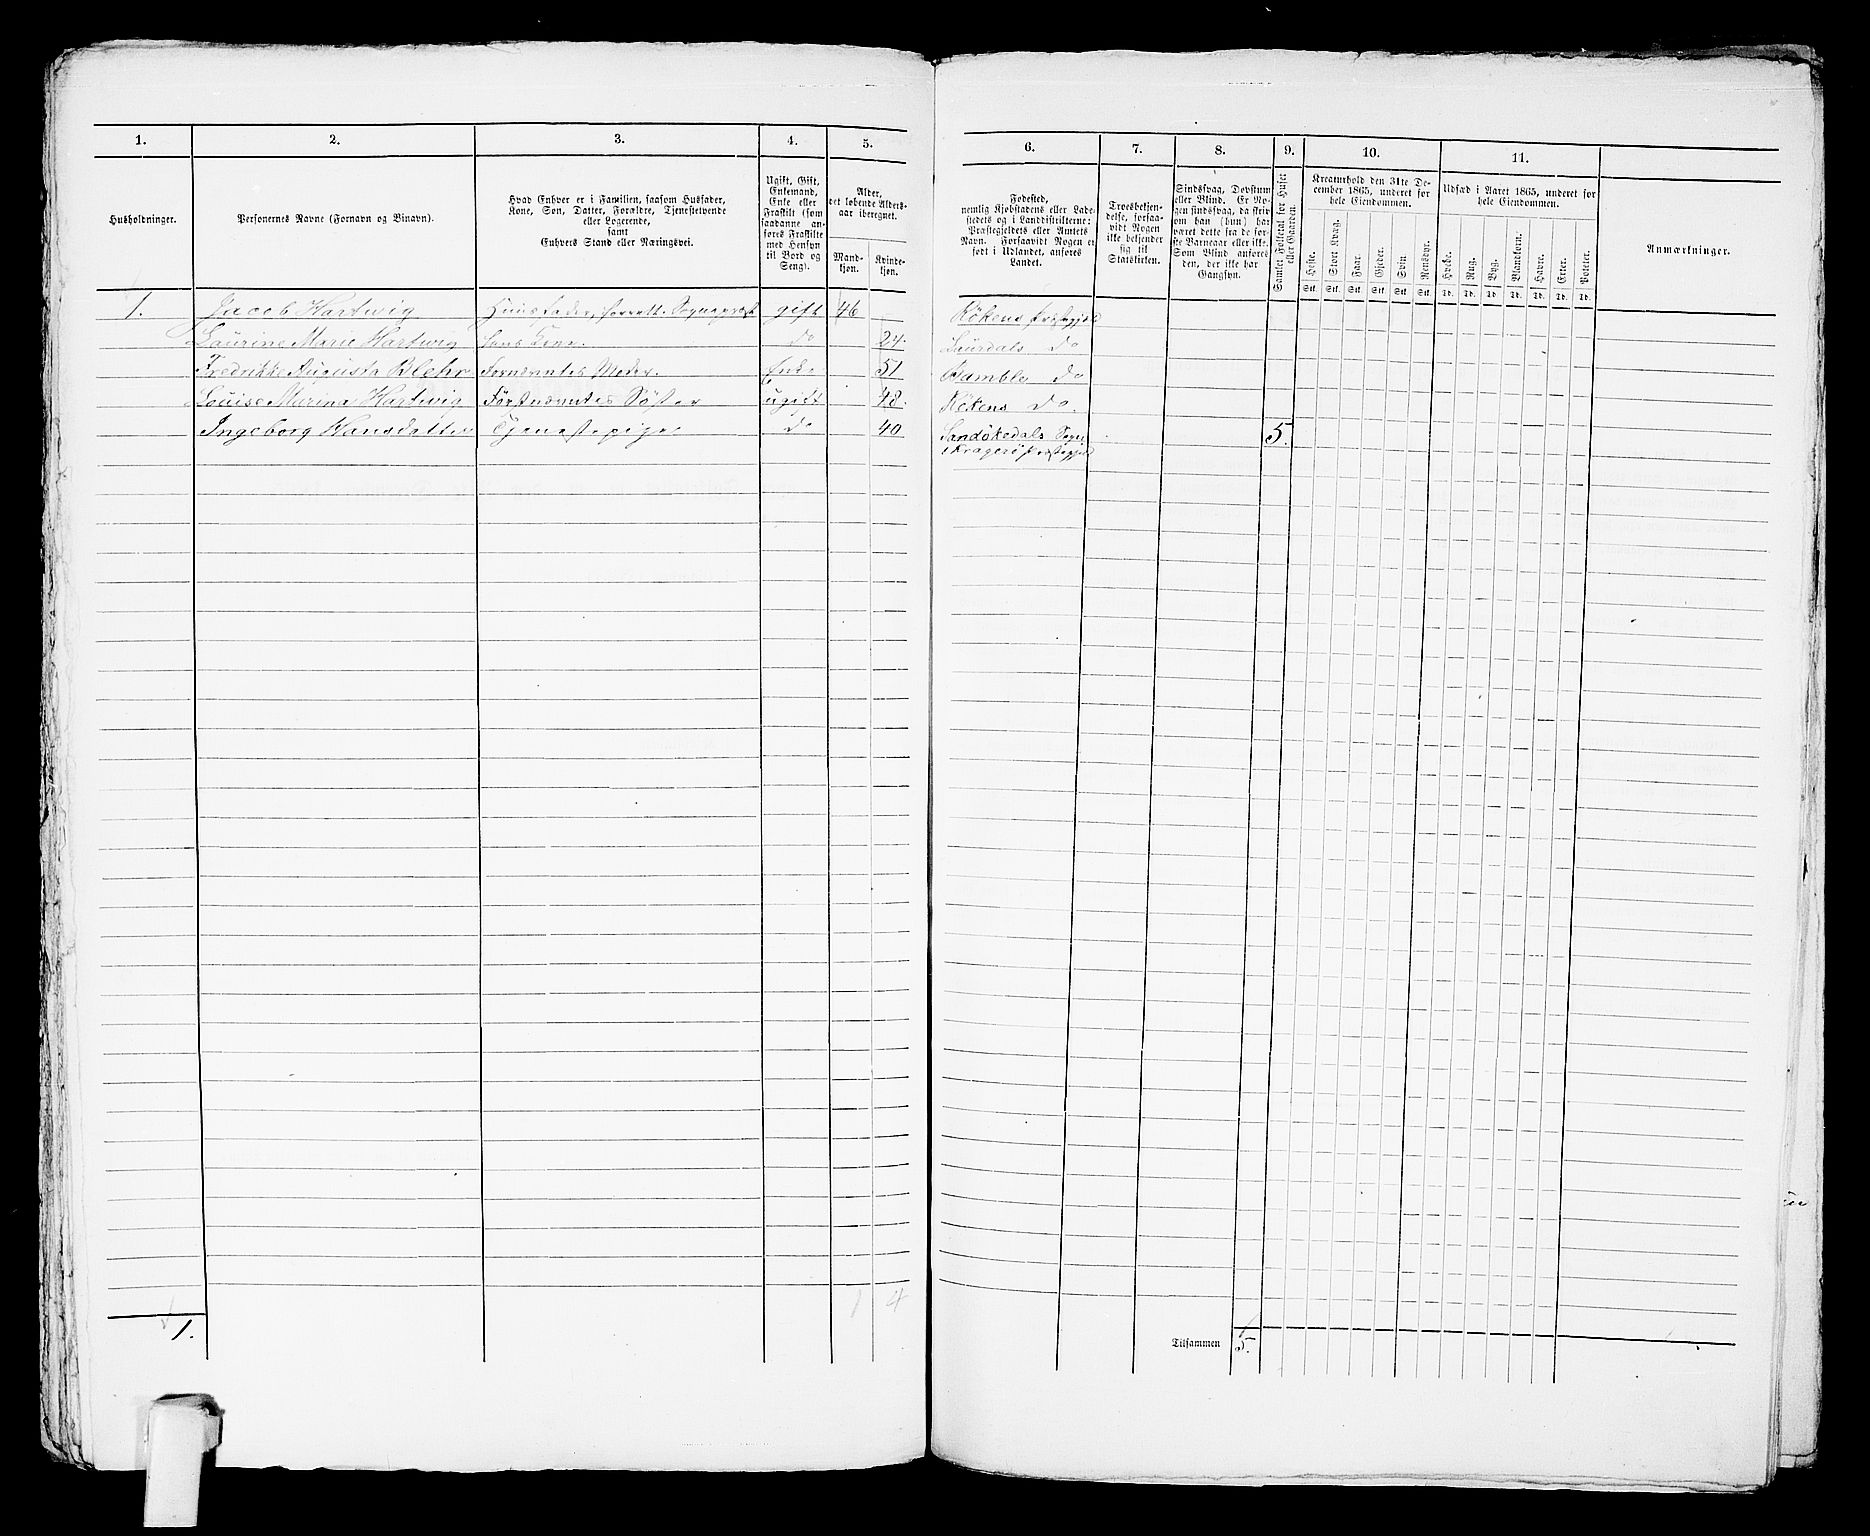 1.
2.
3.
4.
5.
Husholdninger.
Personernes Navne (Fornavn og Binavn).
Hvad Enhver er i Familien, saasom Husfader,
Kone, Søn, Datter, Forældre, Tjenestetyende
eller Logerende,
samt
Enhvers Stand eller Næringsvei.
Ugift, Gift,
Enkemand,
Enke eller
Fraskilt (som
saadanne an-
føres Fraskilte
med Hensyn
til Bord og
Seng).
Alder,
det løbende Alders-
aar iberegnet.
Mand-
kjøn.
Kvinde-
kjøn.
1. Jacob Hartwig Huusfader, forrett. Sognepræst gift 46
Laurine Marie Hartwig Hans Kone. do 24.
Fredrikke Augusta Blehr Fornævntes Moder. Enke 51
Louise Marina Hartwig Førstnævntes Søster ugift 48.
Ingeborg Hansdatter Tjenestepige do 40
1 4
1.
6.
7.
8.
9.
10.
11.
Fødested,
nemlig Kjøbstadens eller Lade-
stedets og i Landdistrikterne:
Præstegjeldets eller Amtets
Navn. Forsaavidt Nogen er
født i Udlandet, anføres
Landet.
Troesbekjen-
delse, forsaa-
vidt Nogen
ikke bekjender
sig til
Statskirken.
Sindssvag, Døvstum
eller Blind. Er No-
gen sindssvag, da skriv
om han (hun) har
været dette fra de før-
ste Barneaar eller ikke.
Som Blind anføres
den, der ikke har
Gangsyn.
Samlet Folketal for Huset
eller Gaarden.
Kreaturhold den 31te De-
cember 1865, underet for
hele Eiendommen.
Heste.
Stort Kvæg.
Faar.
Gjeder.
Svin.
Rensdyr.
Stk. Stk. Stk. Stk. Stk. Stk.
Udsæd i Aaret 1865, underet for
hele Eiendommen.
Hvede.
Rug.
Byg.
Blandkorn.
Havre.
Erter.
Poteter.
Td. Td. Td. Td. Td. Td. Td.
Anmærkninger.
Rökens Præstegjeld
Laurdals do
Bamble do
Rökens do.
Sandökedals Sogn 5.
i Kragerö Præstegjeld
Tilsammen 5.